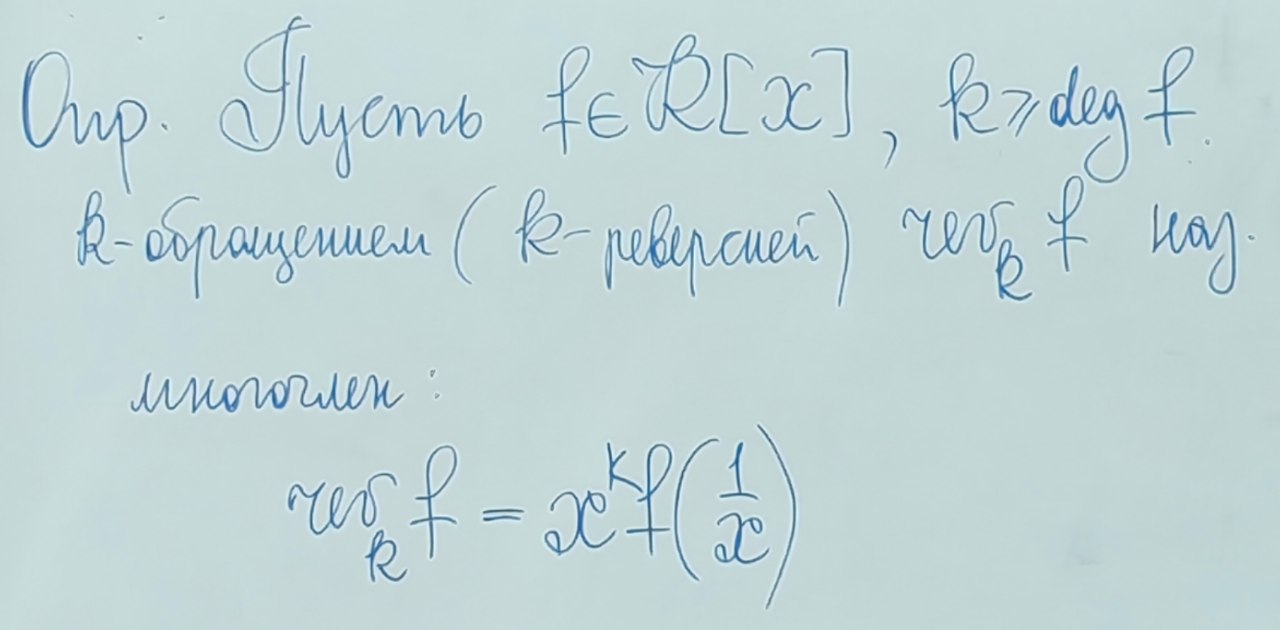 Опр. Пусть f ∈ R[x], k ⩾ deg f.
k-обращением (k-реверсией) rev_k f наз.
многочлен:
rev_k f = x^k f(1/x)